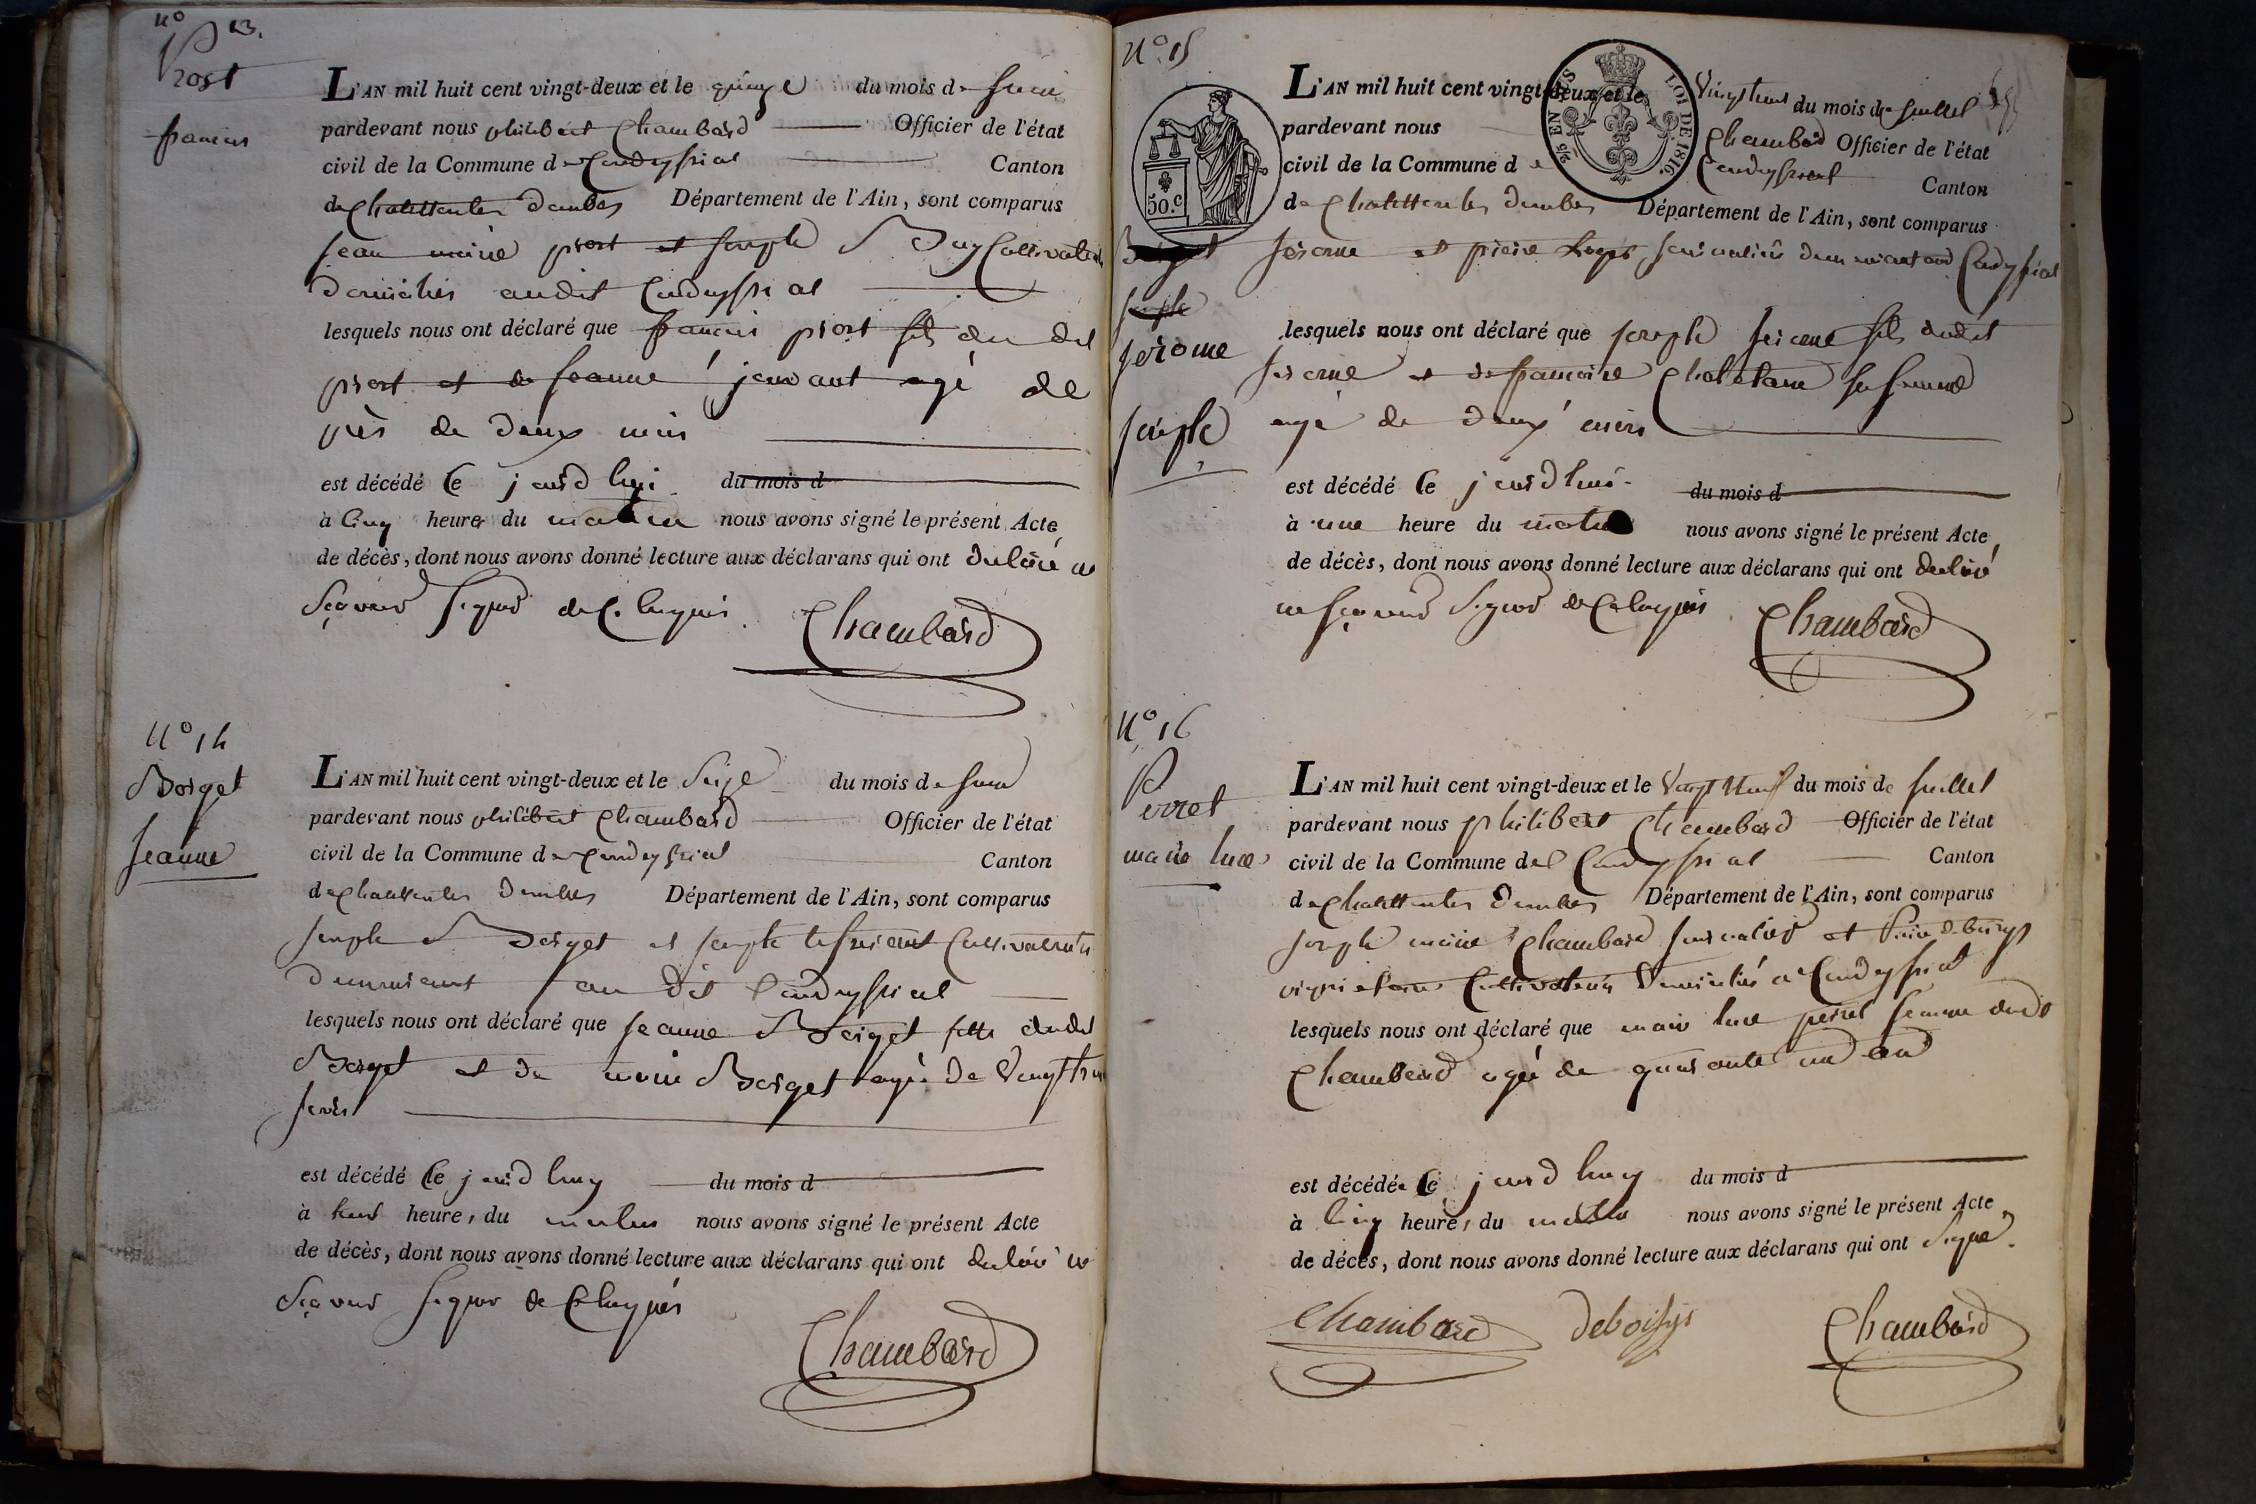 N° 13.
Prost
francois
L'AN mil huit cent vingt-deux et le quinze du mois de Juin
pardevant nous philibert Chambard Officier de l'état
civil de la Commune de Condeyssiat Canton
de Chatillon les Dombes Département de l'Ain, sont comparus
jean marie prost et joseph Buy Cultivateurs
domiciliés audit Condeyssiat
lesquels nous ont déclaré que francois prost fils du dit
prost et de jeanne agé de
près de deux mois
est décédé Ce jourd'hui du mois d
à Cinq heures du matin nous avons signé le présent Acte
de décès, dont nous avons donné lecture aux déclarans qui ont declaré ne
Sçavoir signer de Ce Enquis. Chambard
N° 14
Borget
Jeanne
L'AN mil huit cent vingt-deux et le Seize du mois de Juin
pardevant nous philibert Chambard Officier de l'état
civil de la Commune de Condeyssiat Canton
de Chatillon les Dombes Département de l'Ain, sont comparus
joseph Borget et joseph Cultivateurs
demeurant au dit Condeyssiat
lesquels nous ont déclaré que jeanne Borget fille dudit
Borget et de marie Borget agée de Vingt
jours
est décédé Ce jourd huy du mois d
à heures du matin nous avons signé le présent Acte
de décès, dont nous avons donné lecture aux déclarans qui ont declaré ne
Sçavoir signer de Ce Enquis Chambard
N° 15
50.c
EN SUS
LOI DE 1816.
L'AN mil huit cent vingt-deux et le Vingt du mois de Juillet
pardevant nous Chambard Officier de l'état
civil de la Commune de Condeyssiat Canton
de Chatillon les Dombes Département de l'Ain, sont comparus
Jerome et pierre journaliers demeurant aud Condeyssiat
joseph
Jerome
joseph
lesquels nous ont déclaré que joseph Jerome fils dudit
Jerome et de francoise Chatelard sa femme
agé de deux mois
est décédé Ce jourd'hui du mois d
à une heure du matin nous avons signé le présent Acte
de décès, dont nous avons donné lecture aux déclarans qui ont declaré
ne sçavoir signer de Ce Enquis Chambard
N° 16
Perret
marie luce
L'AN mil huit cent vingt-deux et le Vingt du mois de Juillet
pardevant nous philibert Chambard Officier de l'état
civil de la Commune de Condeyssiat Canton
de Chatillon les Dombes Département de l'Ain, sont comparus
joseph marie Chambard journalier et
Cultivateurs domiciliés a Condeyssiat
lesquels nous ont déclaré que marie luce perret femme dudi
Chambard agée de quarante un an
est décédée Ce jourd huy du mois d
à Cinq heures du matin nous avons signé le présent Acte
de décès, dont nous avons donné lecture aux déclarans qui ont signé.
Chambard deboissys Chambard